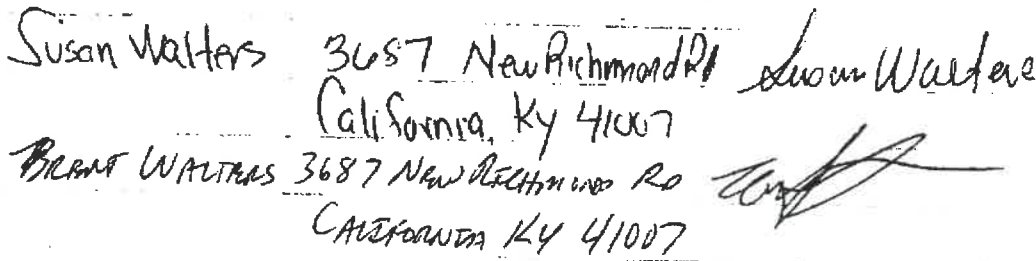 Susan Walters 3687 New Richmond Rd Susan Walters
California, Ky 41007
BRENT WALTERS 3687 NEW RICHMOND RD
CALIFORNIA KY 41007